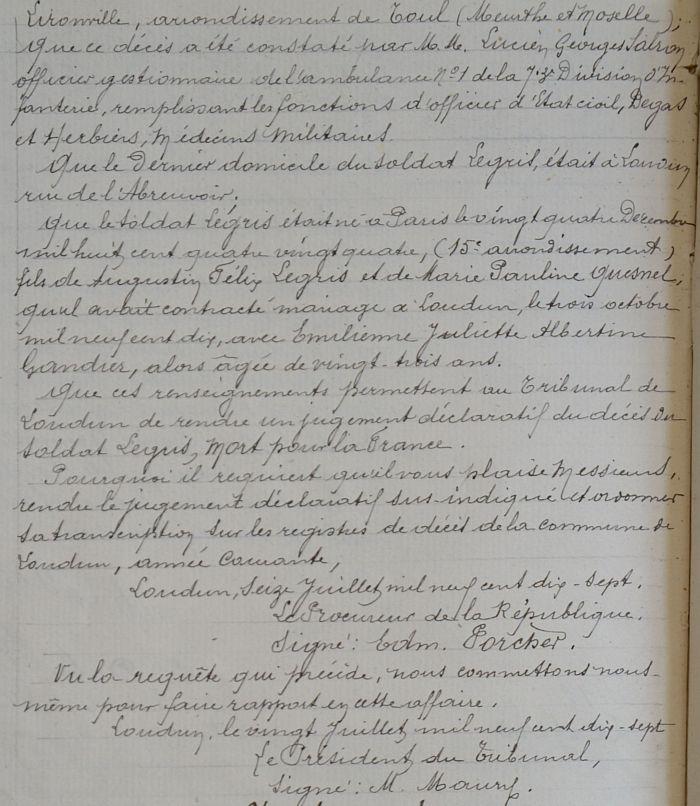 Lironville, arrondissement de Toul (Meurthe et Moselle);
Que ce décès a été constaté par M.M. Lucien Georges
officier gestionnaire de l'ambulance N°1 de la 73e Division d'In-
fanterie, remplissant les fonctions d'officier d'Etat civil, Degas
et Herbiers, Médecins Militaires.
Que le Dernier domicile du soldat Legris, était à Loudun
rue de l'Abreuvoir.
Que le soldat Legris était né à Paris le vingt quatre Décembre
mil huit cent quatre vingt quatre, (15e arrondissement)
fils de Augustin Félix Legris et de Marie Pauline Quesnel,
qu'il avait contracté mariage à Loudun, le trois octobre
mil neuf cent dix, avec Emilienne Juliette Albertine
Gandier, alors âgée de vingt-trois ans.
Que ces renseignements permettent au Tribunal de
Loudun de rendre un jugement déclaratif du décès du
soldat Legris, Mort pour la France.
Pourquoi il requiert qu'il vous plaise Messieurs,
rendre le jugement déclaratif sus-indiqué et ordonner
sa transcription sur les registres de décès de la commune de
Loudun, année courante,
Loudun, Seize Juillet mil neuf cent dix-sept.
Le Procureur de la République.
Signé: Edm. Porcher.
Vu la requête qui précède, nous commettons nous-
même pour faire rapport en cette affaire.
Loudun, le vingt Juillet mil neuf cent dix-sept
Le Président du Tribunal,
Signé: M. Maury.